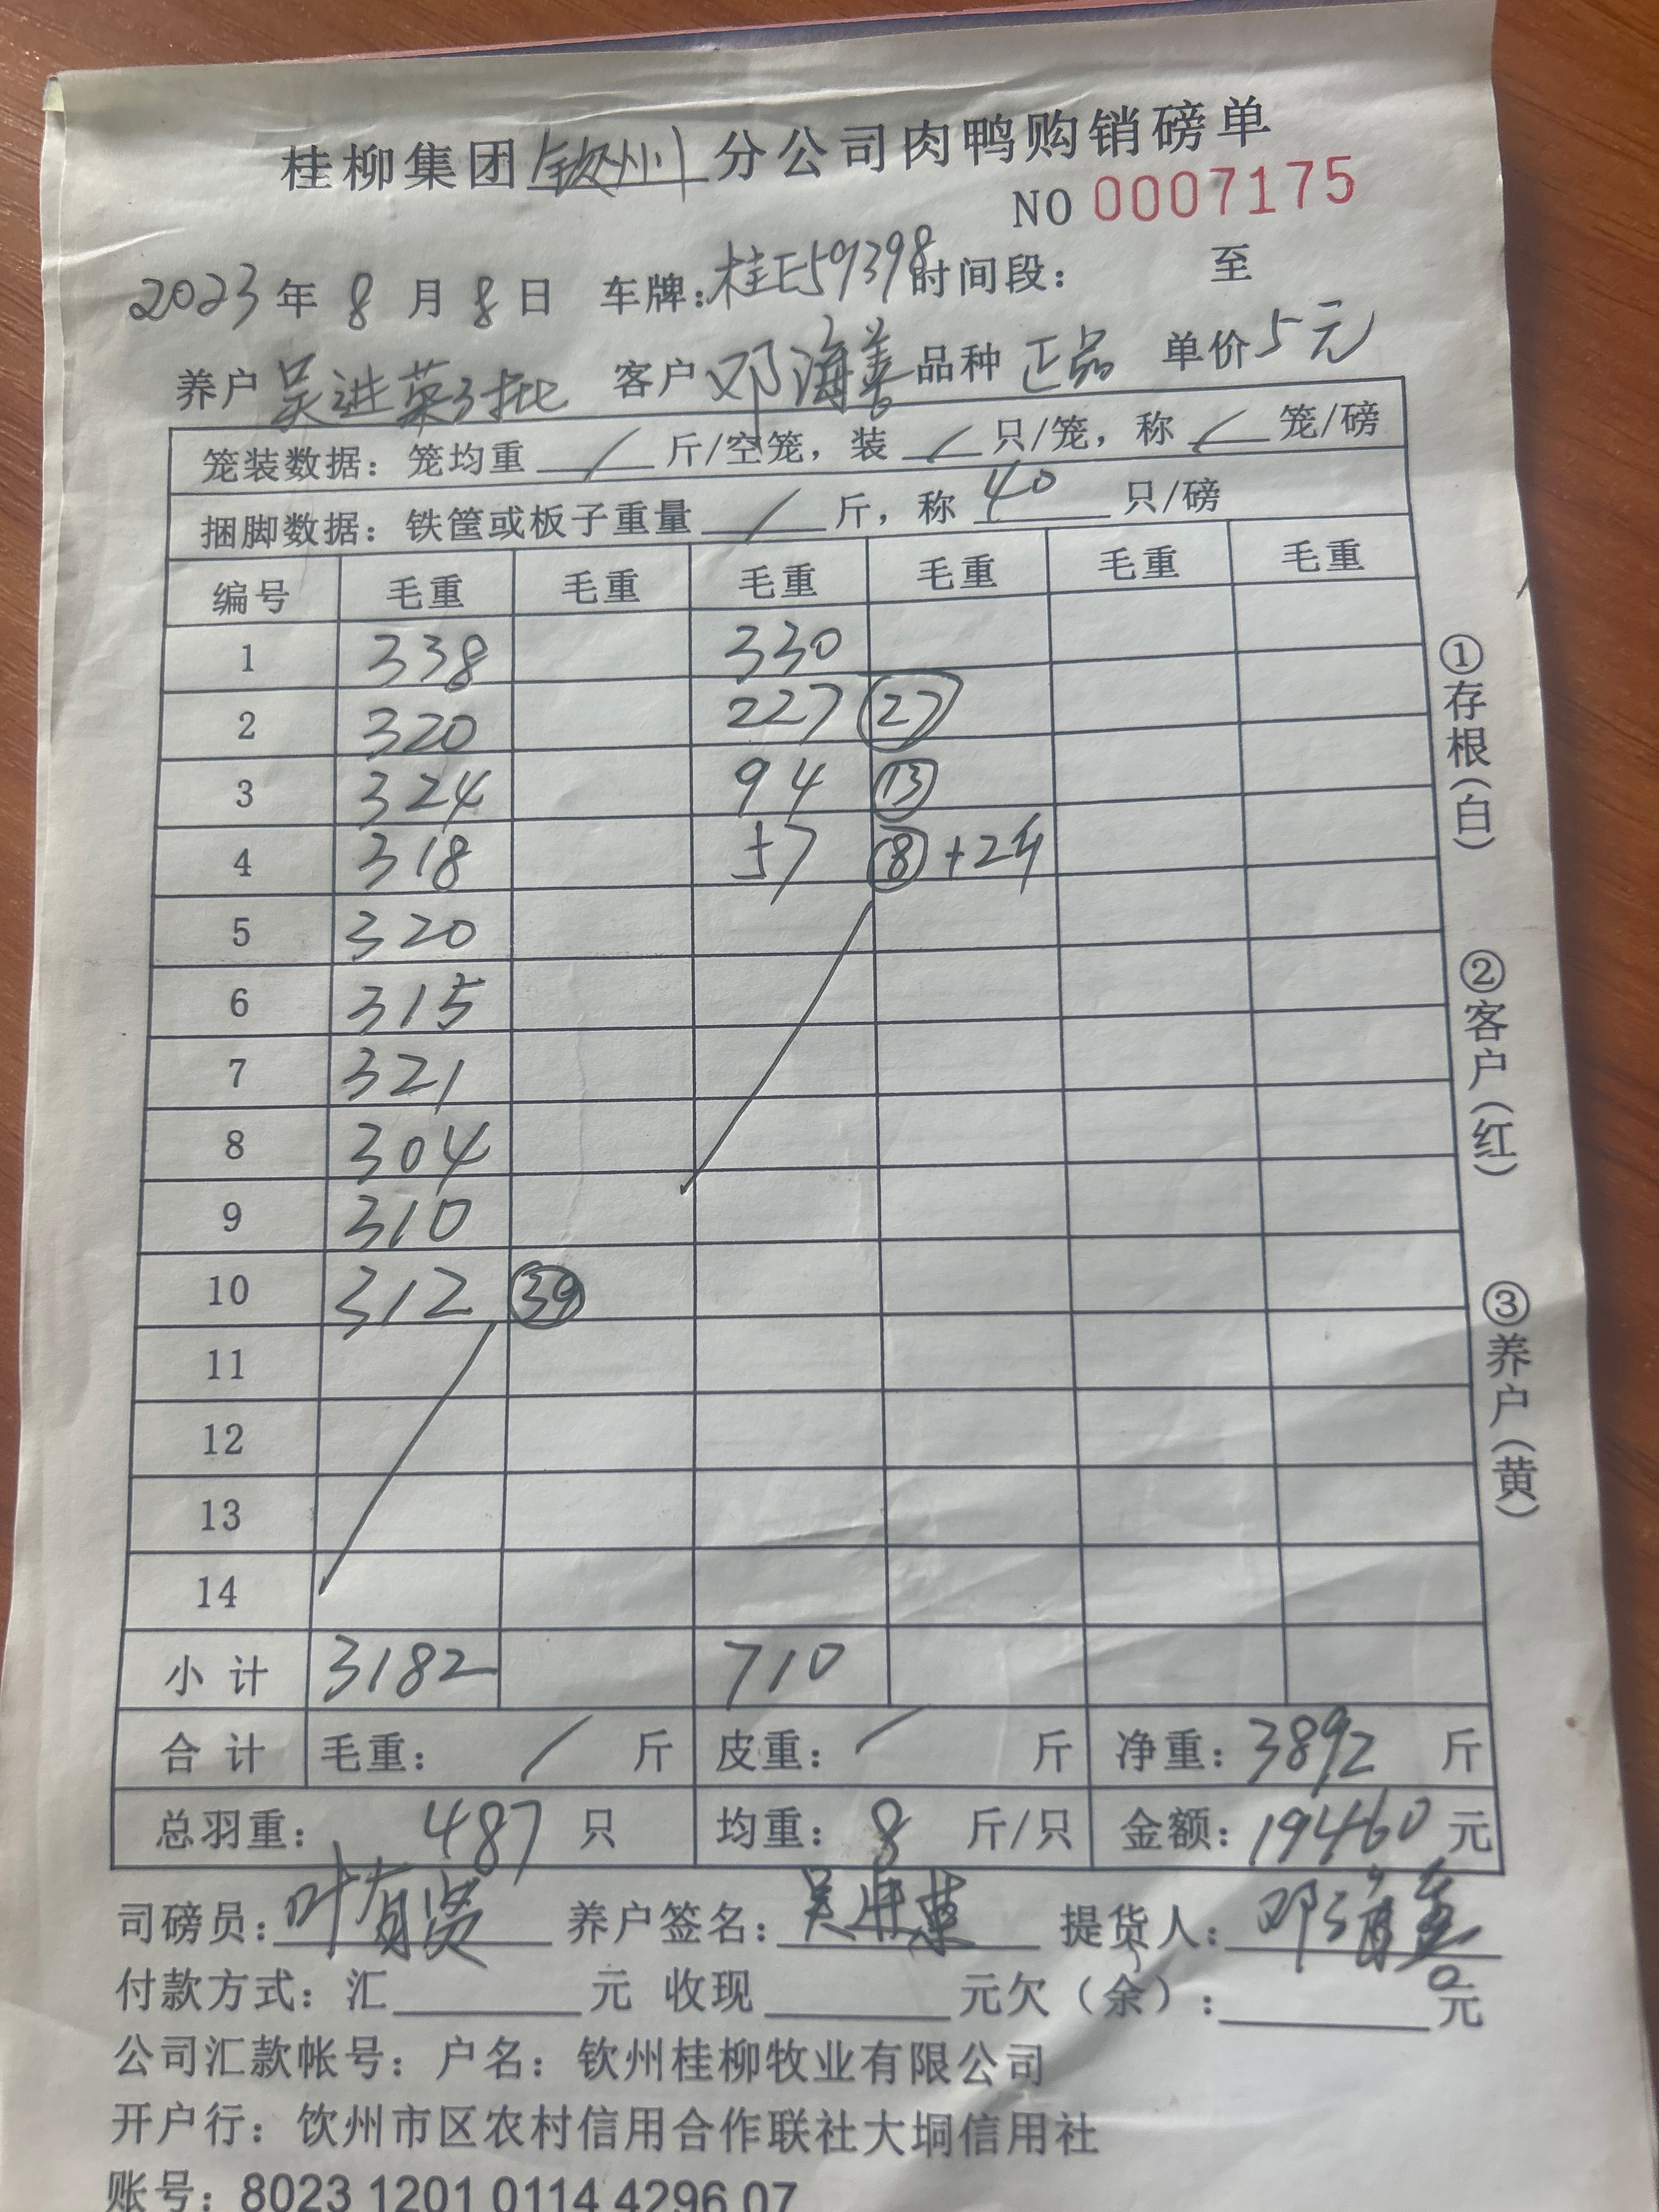 桂柳集团钦州分公司肉鸭购销磅单
NO 0007175
2023年8月8日 车牌:桂E59398时间段: 至
养户 吴进英3批 客户 邓海善 品种 正品 单价5元
笼装数据: 笼均重 / 斤/空笼, 装 / 只/笼, 称 / 笼/磅
捆脚数据: 铁筐或板子重量 / 斤, 称 40 只/磅
编号 毛重 毛重 毛重 毛重 毛重 毛重
1 338 330
2 320 227 ㉗
3 324 94 ⑬
4 318 57 ⑧+2斤
5 320
6 315
7 321
8 304
9 310
10 312 ㊴
11
12
13
14
小计 3182 710
合计 毛重: / 斤 皮重: / 斤 净重: 3892 斤
总羽重: 487 只 均重: 8 斤/只 金额: 19460 元
司磅员: 叶有贤 养户签名: 吴进英 提货人: 邓海善
付款方式: 汇 元 收现 元欠(余): 元
公司汇款帐号: 户名: 钦州桂柳牧业有限公司
开户行: 饮州市区农村信用合作联社大垌信用社
账号: 8023 1201 0114 4296 07
①存根(白)
②客户(红)
③养户(黄)